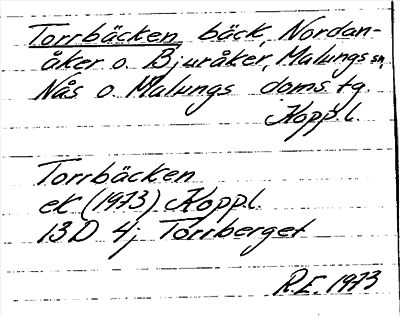 Torrbäcken bäck, Nordan-
åker o. Bjuråker, Malungs sn,
Nås o Malungs doms. tg.
Kopp. l.
Torrbäcken
ek (1973) Koppl.
13D 4j Torrberget
R.E. 1973